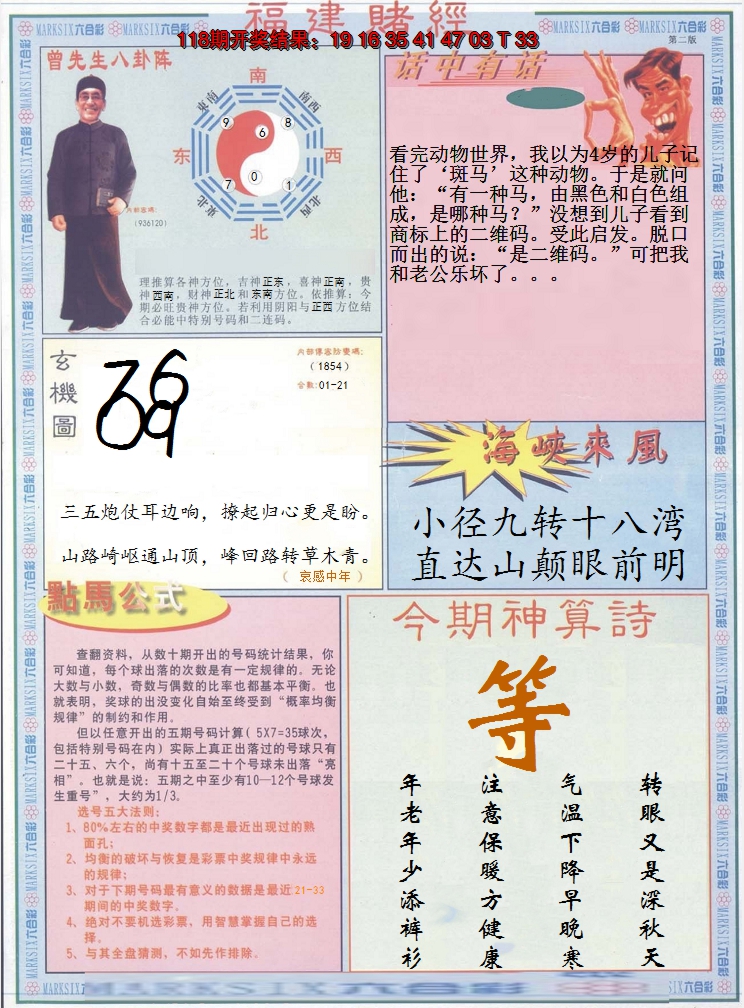 福建賭經
118期开奖结果：19 16 35 41 47 03 T 33
第二版
曾先生八卦阵
南
东南
西南
东
西
東北
西北
北
9
6
8
7
0
1
内部密码:
(936120)
理推算各神方位，吉神正东，喜神正南，贵
神西南，财神正北和东南方位。依推算：今
期必旺贵神方位。若利用阴阳与正西方位结
合必能中特别号码和二连码。
话中有话
看完动物世界，我以为4岁的儿子记
住了‘斑马’这种动物。于是就问
他：“有一种马，由黑色和白色组
成，是哪种马？”没想到儿子看到
商标上的二维码。受此启发。脱口
而出的说：“是二维码。”可把我
和老公乐坏了。。。
玄機圖
内部傳密防變碼:
（1854）
合数:01-21
三五炮仗耳边响，撩起归心更是盼。
山路崎岖通山顶，峰回路转草木青。
（ 哀感中年 ）
海峽來風
小径九转十八湾
直达山颠眼前明
點馬公式
查翻资料，从数十期开出的号码统计结果，你
可知道，每个球出落的次数是有一定规律的。无论
大数与小数，奇数与偶数的比率也都基本平衡。也
就表明，奖球的出没变化自始至终受到“概率均衡
规律”的制约和作用。
但以任意开出的五期号码计算( 5X7=35球次，
包括特别号码在内) 实际上真正出落过的号球只有
二十五、六个，尚有十五至二十个号球未出落“亮
相”。也就是说：五期之中至少有10—12个号球发
生重号”，大约为1/3。
选号五大法则:
1、80%左右的中奖数字都是最近出现过的熟
面孔；
2、均衡的破坏与恢复是彩票中奖规律中永远
的规律；
3、对于下期号码最有意义的数据是最近21-33
期间的中奖数字。
4、绝对不要机选彩票，用智慧掌握自己的选
择。
5、与其全盘猜测，不如先作排除.
今期神算詩
等
转眼又是深秋天
气温下降早晚寒
注意保暖方健康
年老年少添裤衫